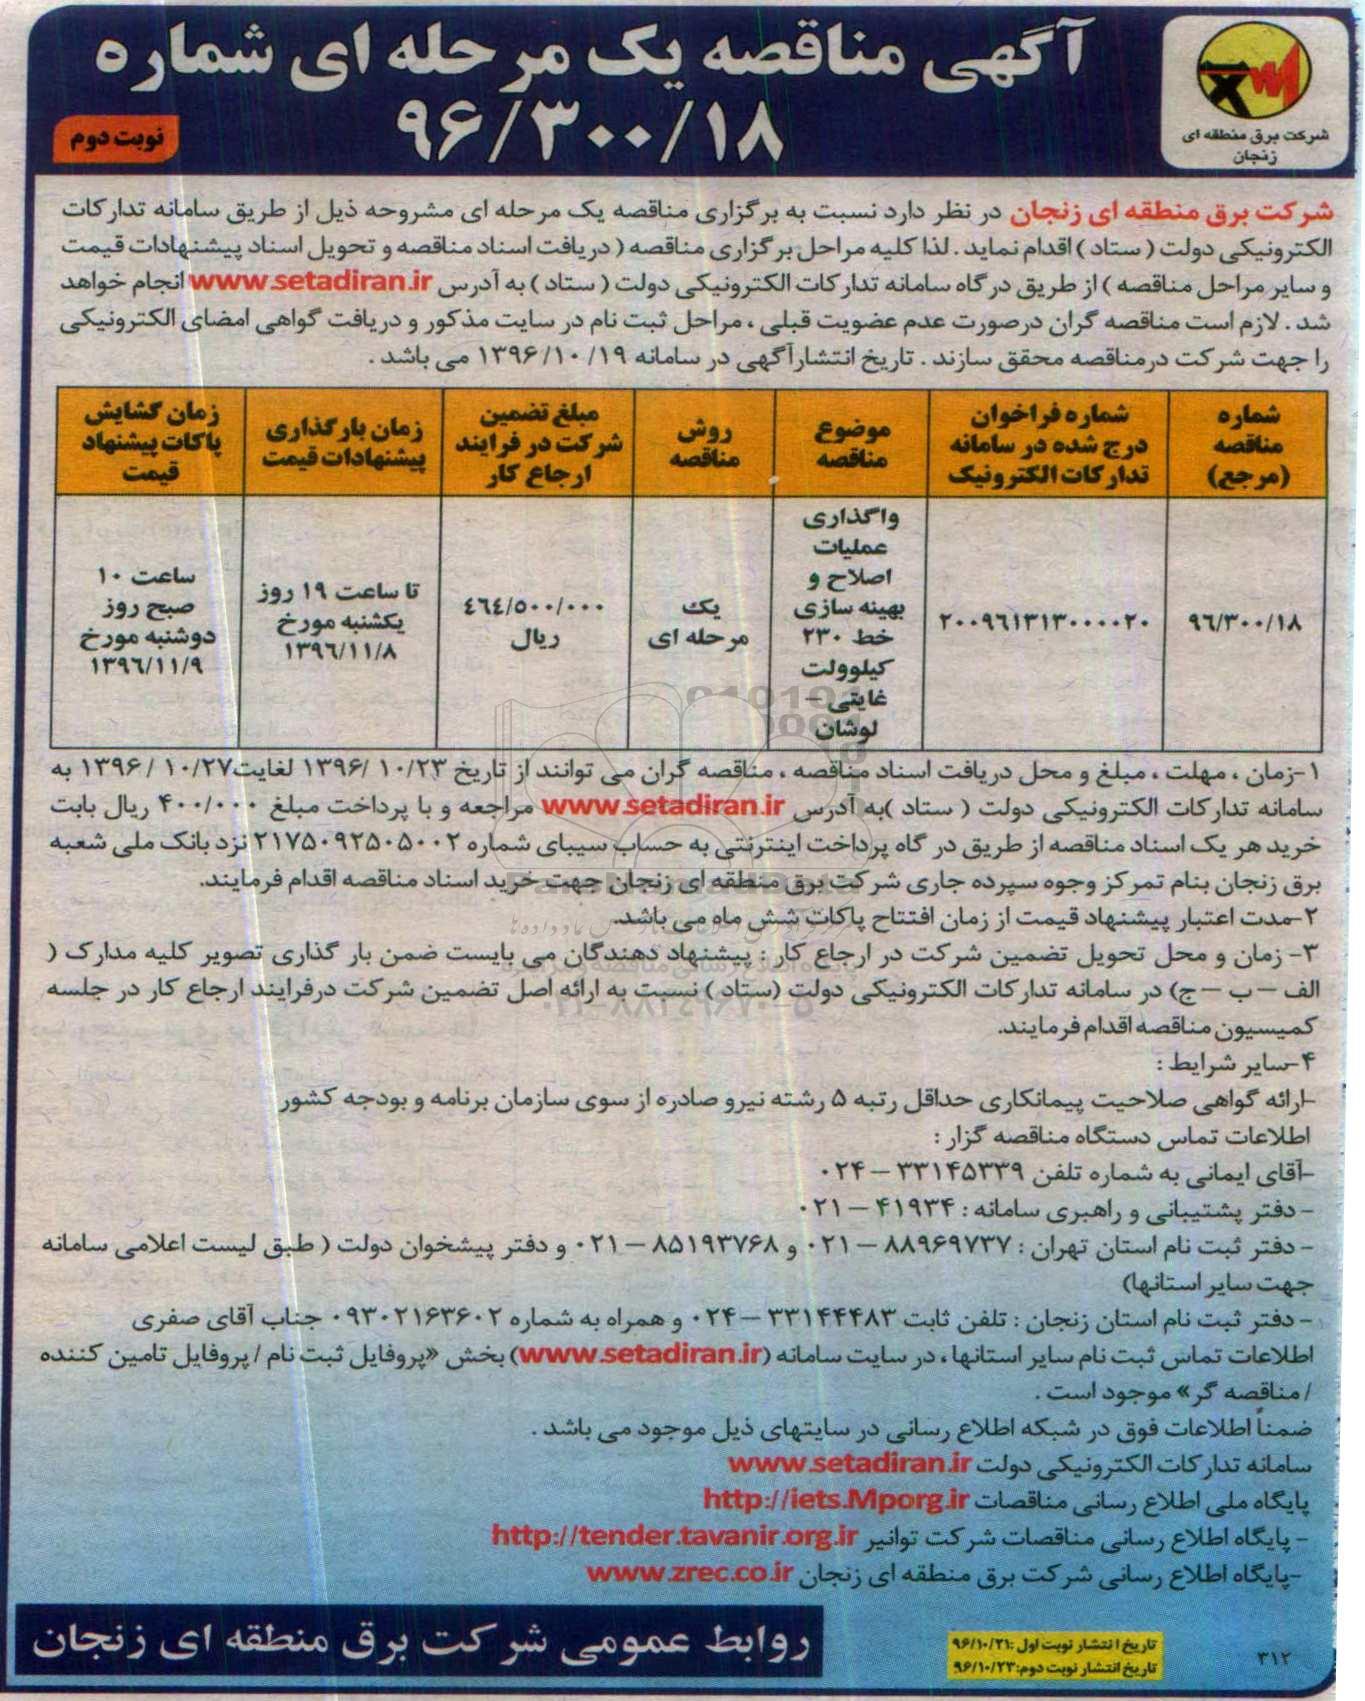 آگهی مناقصه یک مرحله ای شماره
۹۶/۳۰۰/۱۸
نوبت دوم
شرکت برق منطقه ای
زنجان
شرکت برق منطقه ای زنجان در نظر دارد نسبت به برگزاری مناقصه یک مرحله ای مشروحه ذیل از طریق سامانه تدارکات
الکترونیکی دولت ( ستاد ) اقدام نماید . لذا کلیه مراحل برگزاری مناقصه ( دریافت اسناد مناقصه و تحویل اسناد پیشنهادات قیمت
و سایر مراحل مناقصه ) از طریق درگاه سامانه تدارکات الکترونیکی دولت ( ستاد ) به آدرس www.setadiran.ir انجام خواهد
شد . لازم است مناقصه گران درصورت عدم عضویت قبلی ، مراحل ثبت نام در سایت مذکور و دریافت گواهی امضای الکترونیکی
را جهت شرکت درمناقصه محقق سازند . تاریخ انتشارآگهی در سامانه ۱۳۹۶/۱۰/۱۹ می باشد .
شماره مناقصه (مرجع)
شماره فراخوان درج شده در سامانه تدارکات الکترونیک
موضوع مناقصه
روش مناقصه
مبلغ تضمین شرکت در فرایند ارجاع کار
زمان بارگذاری پیشنهادات قیمت
زمان گشایش پاکات پیشنهاد قیمت
۹۶/۳۰۰/۱۸
۲۰۰۹۶۱۳۱۳۰۰۰۰۲۰
واگذاری عملیات اصلاح و بهینه سازی خط ۲۳۰ کیلوولت غایتی – لوشان
یک مرحله ای
۴۶۴/۵۰۰/۰۰۰ ریال
تا ساعت ۱۹ روز یکشنبه مورخ ۱۳۹۶/۱۱/۸
ساعت ۱۰ صبح روز دوشنبه مورخ ۱۳۹۶/۱۱/۹
۱-زمان ، مهلت ، مبلغ و محل دریافت اسناد مناقصه ، مناقصه گران می توانند از تاریخ ۱۳۹۶/۱۰/۲۳ لغایت ۱۳۹۶/۱۰/۲۷ به
سامانه تدارکات الکترونیکی دولت ( ستاد )به آدرس www.setadiran.ir مراجعه و با پرداخت مبلغ ۴۰۰/۰۰۰ ریال بابت
خرید هر یک اسناد مناقصه از طریق در گاه پرداخت اینترنتی به حساب سیبای شماره ۲۱۷۵۰۹۲۵۰۵۰۰۲ نزد بانک ملی شعبه
برق زنجان بنام تمرکز وجوه سپرده جاری شرکت برق منطقه ای زنجان جهت خرید اسناد مناقصه اقدام فرمایند.
۲-مدت اعتبار پیشنهاد قیمت از زمان افتتاح پاکات شش ماه می باشد.
۳- زمان و محل تحویل تضمین شرکت در ارجاع کار : پیشنهاد دهندگان می بایست ضمن بار گذاری تصویر کلیه مدارک (
الف – ب – ج) در سامانه تدارکات الکترونیکی دولت (ستاد ) نسبت به ارائه اصل تضمین شرکت درفرایند ارجاع کار در جلسه
کمیسیون مناقصه اقدام فرمایند.
۴-سایر شرایط :
-ارائه گواهی صلاحیت پیمانکاری حداقل رتبه ۵ رشته نیرو صادره از سوی سازمان برنامه و بودجه کشور
اطلاعات تماس دستگاه مناقصه گزار :
-آقای ایمانی به شماره تلفن ۳۳۱۴۵۳۳۹ – ۰۲۴
- دفتر پشتیبانی و راهبری سامانه : ۴۱۹۳۴ – ۰۲۱
- دفتر ثبت نام استان تهران : ۸۸۹۶۹۷۳۷ – ۰۲۱ و ۸۵۱۹۳۷۶۸ – ۰۲۱ و دفتر پیشخوان دولت ( طبق لیست اعلامی سامانه
جهت سایر استانها)
- دفتر ثبت نام استان زنجان : تلفن ثابت ۳۳۱۴۴۴۸۳ – ۰۲۴ و همراه به شماره ۰۹۳۰۲۱۶۳۶۰۲ جناب آقای صفری
اطلاعات تماس ثبت نام سایر استانها ، در سایت سامانه (www.setadiran.ir) بخش «پروفایل ثبت نام / پروفایل تامین کننده
/ مناقصه گر» موجود است .
ضمناً اطلاعات فوق در شبکه اطلاع رسانی در سایتهای ذیل موجود می باشد .
سامانه تدارکات الکترونیکی دولت www.setadiran.ir
پایگاه ملی اطلاع رسانی مناقصات http://iets.Mporg.ir
- پایگاه اطلاع رسانی مناقصات شرکت توانیر http://tender.tavanir.org.ir
-پایگاه اطلاع رسانی شرکت برق منطقه ای زنجان www.zrec.co.ir
۳۱۲
تاریخ انتشار نوبت اول :۹۶/۱۰/۲۱
تاریخ انتشار نوبت دوم:۹۶/۱۰/۲۳
روابط عمومی شرکت برق منطقه ای زنجان